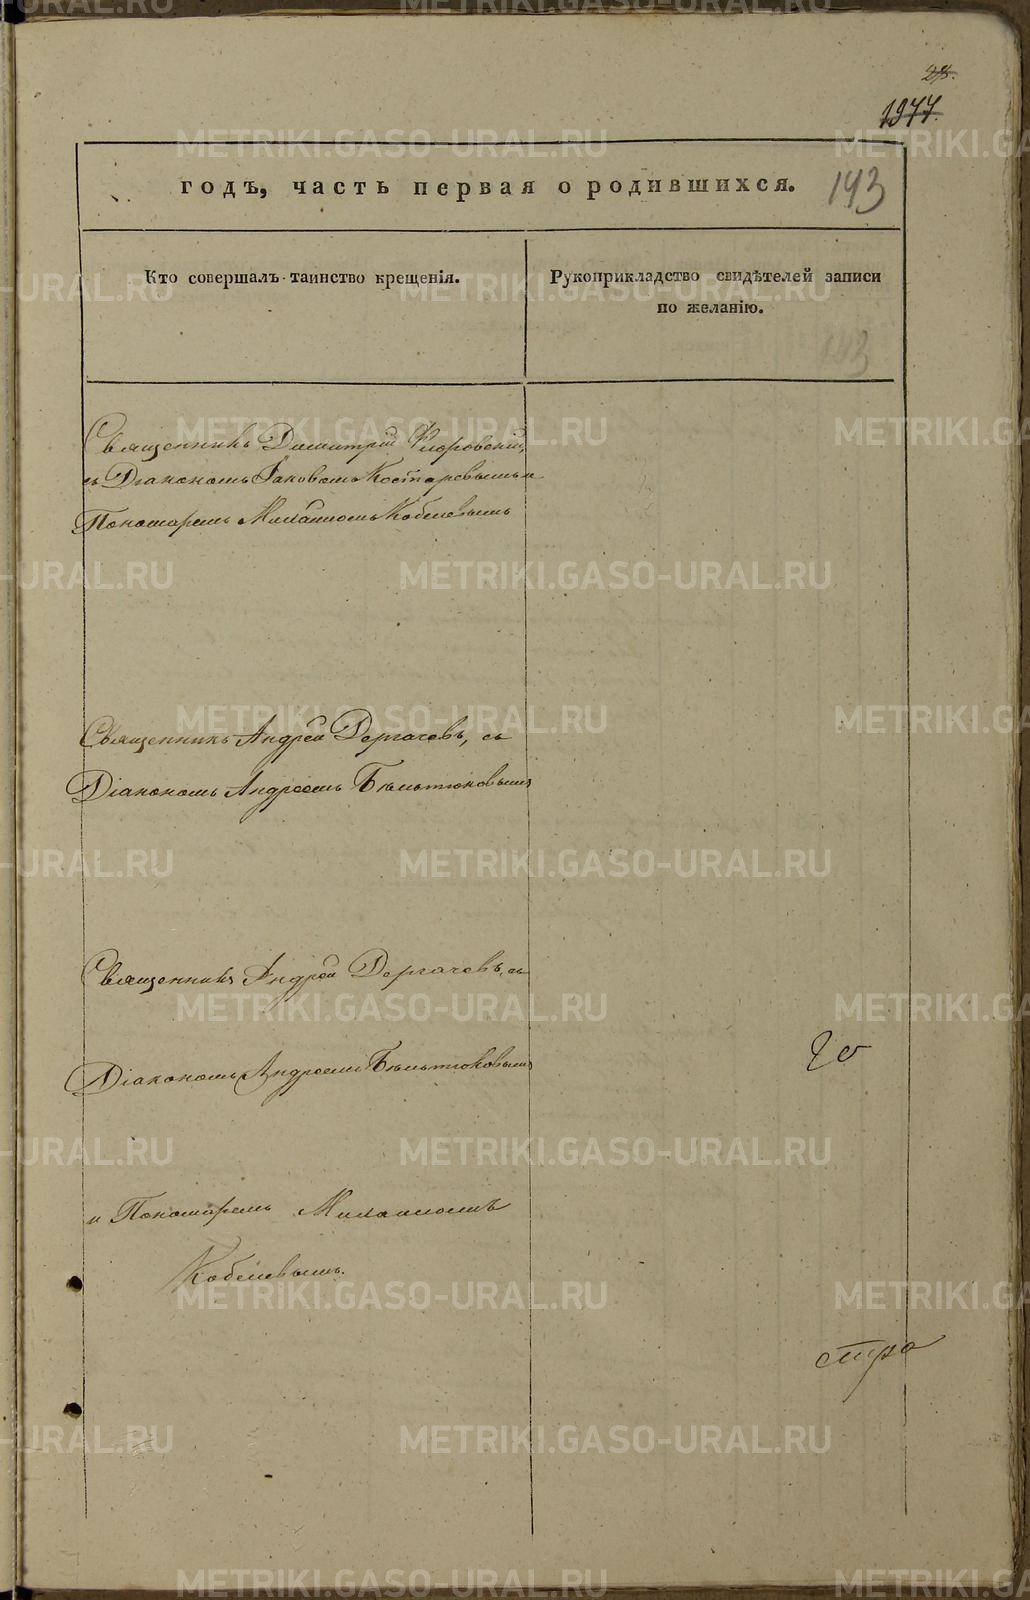 28.
1977.
годъ, часть первая о родившихся. 143
Кто совершалъ таинство крещенія.
Рукоприкладство свидѣтелей записи
по желанію.
143
Священникъ Димитрій Флоровскій,
съ Діакономъ Іаковомъ Костаревымъ и
Пономаремъ Михаиломъ Кобелевымъ
Священникъ Андрей Дергачевъ, съ
Діакономъ Андреемъ Бѣльтюковымъ
Священникъ Андрей Дергачевъ, съ
Діакономъ Андреемъ Бѣльтюковымъ
и Пономаремъ Михаиломъ
Кобелевымъ.
METRIKI.GASO-URAL.RU